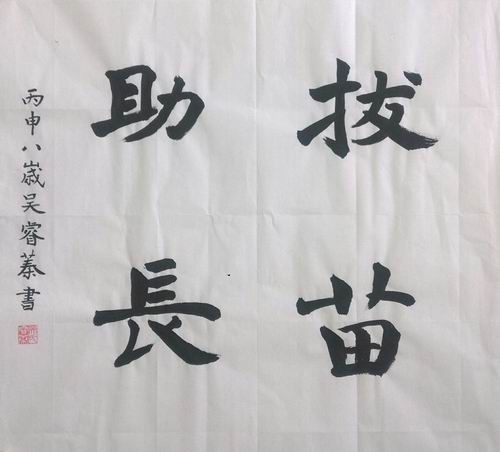 拔苗
助長
丙申八歲吴睿蓁書